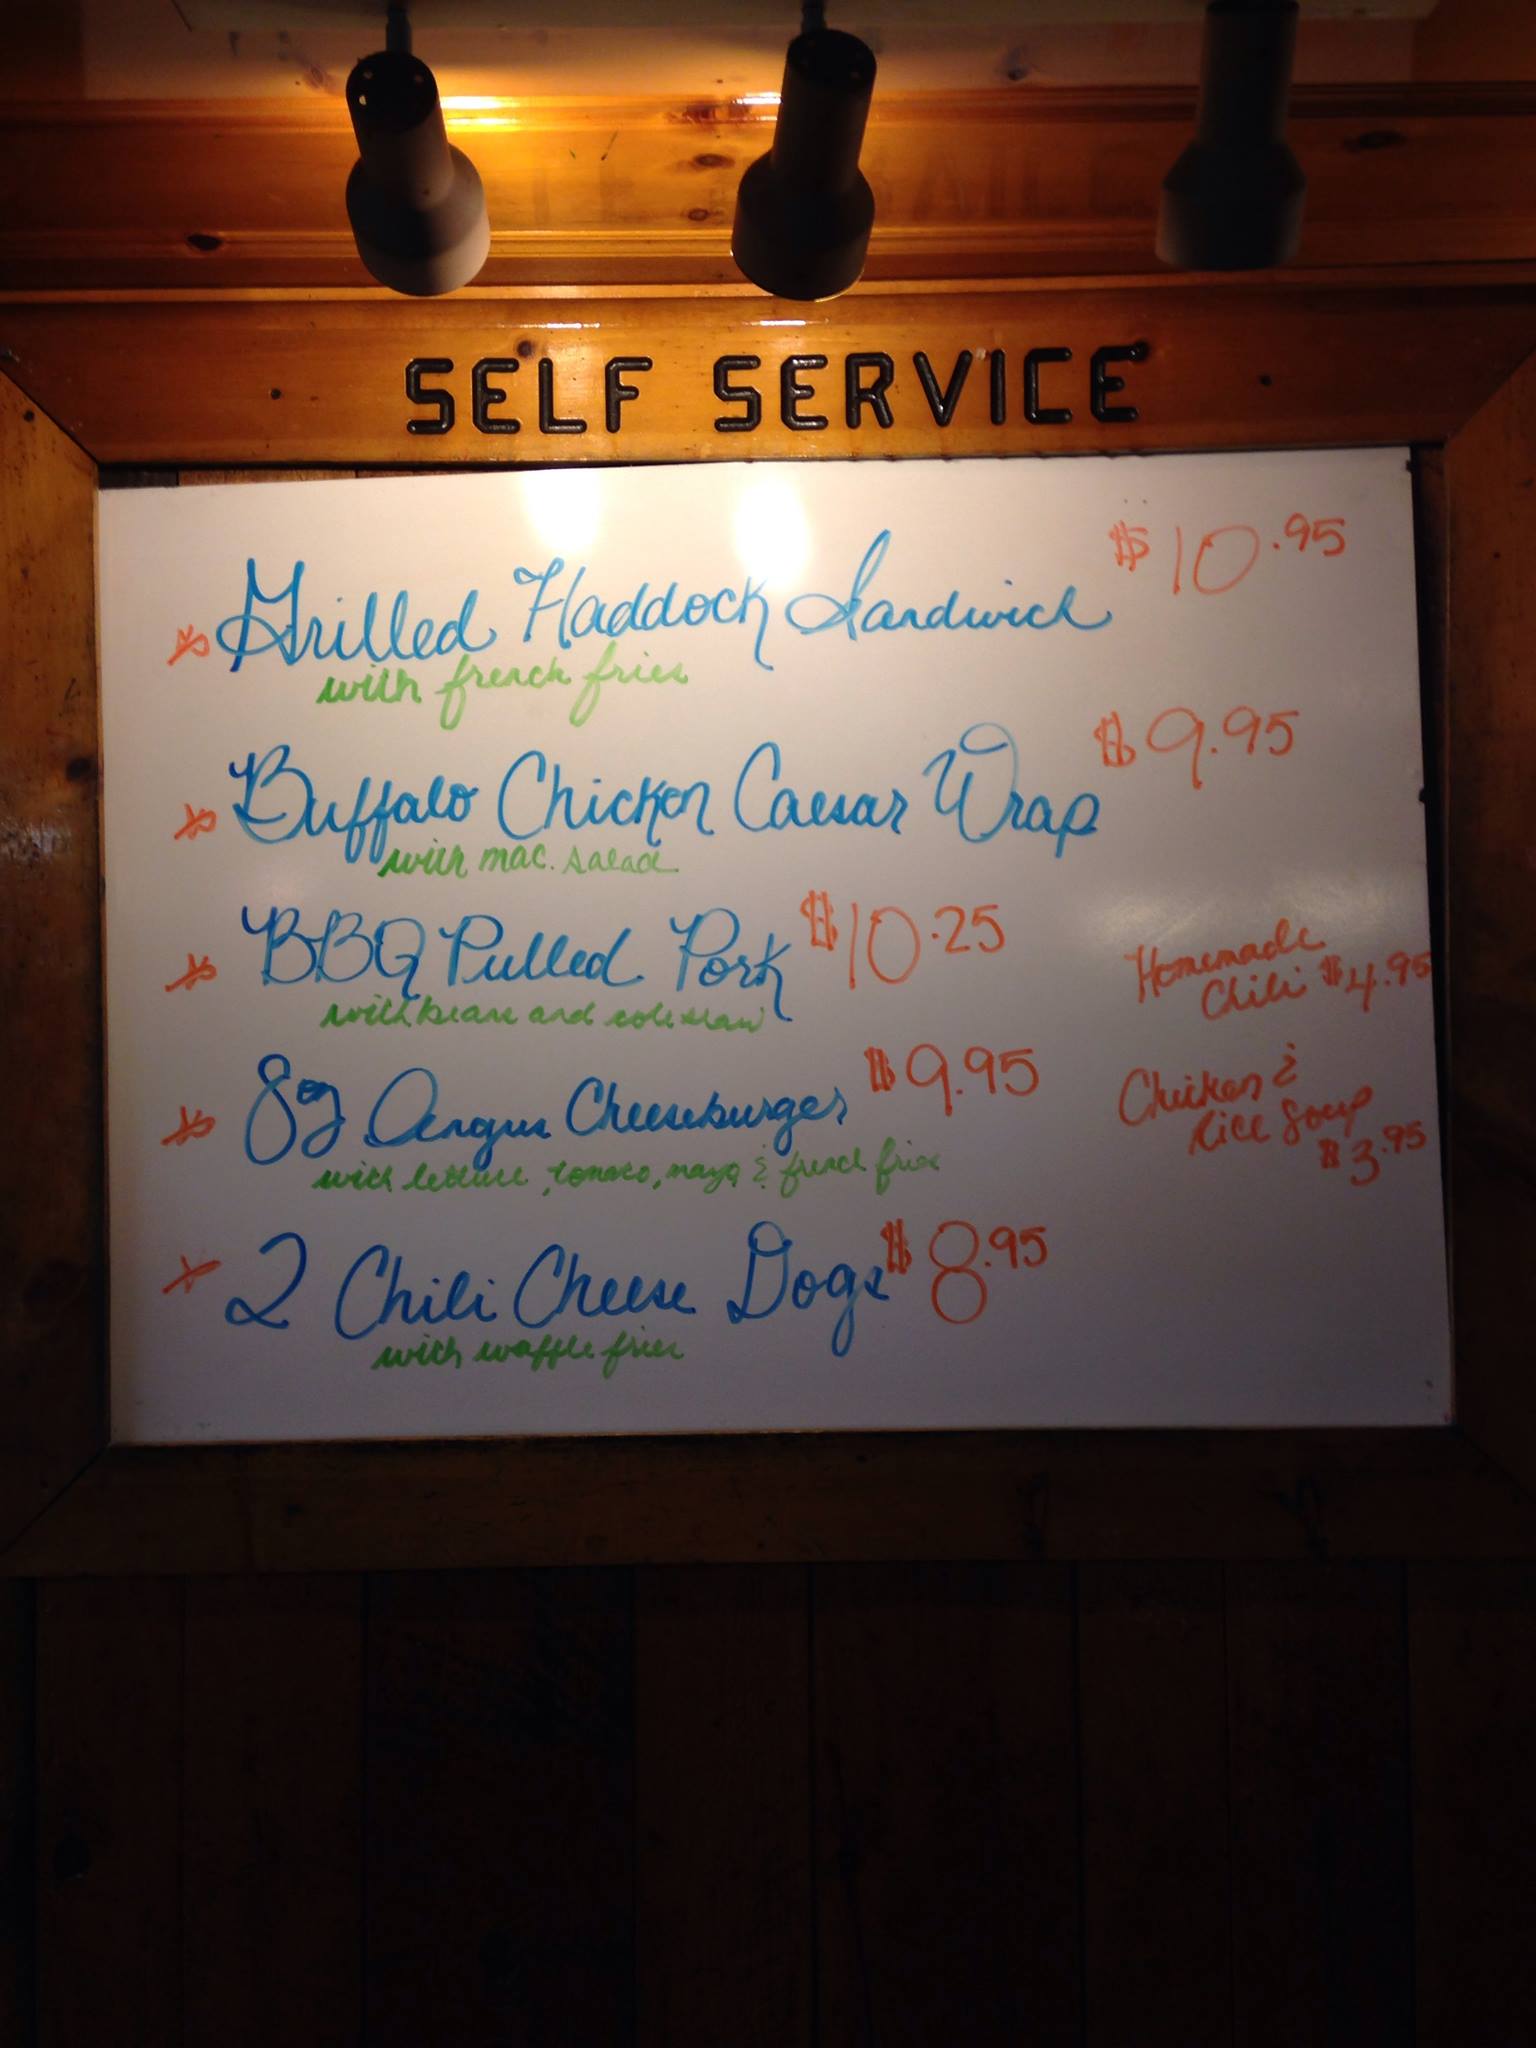 SELF SERVICE
Grilled Haddock Sandwich $10.95
with french fries
Buffalo Chicken Caesar Wrap $9.95
with mac. salad
BBQ Pulled Pork $10.25
with beans and coleslaw
8oz Angus Cheeseburger $9.95
with lettuce, tomato, mayo & french fries
2 Chili Cheese Dogs $8.95
with waffle fries
Homemade
Chili $4.95
Chicken &
Rice Soup
$3.95